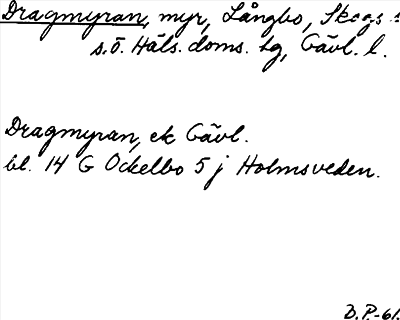 Dragmyran, myr, Långbo, Skogs s
s.ö. Häls. doms. tg, Gävl. l.
Dragmyran, ek Gävl.
bl. 14 G Ockelbo 5 j Holmsveden.
D.P.-61.